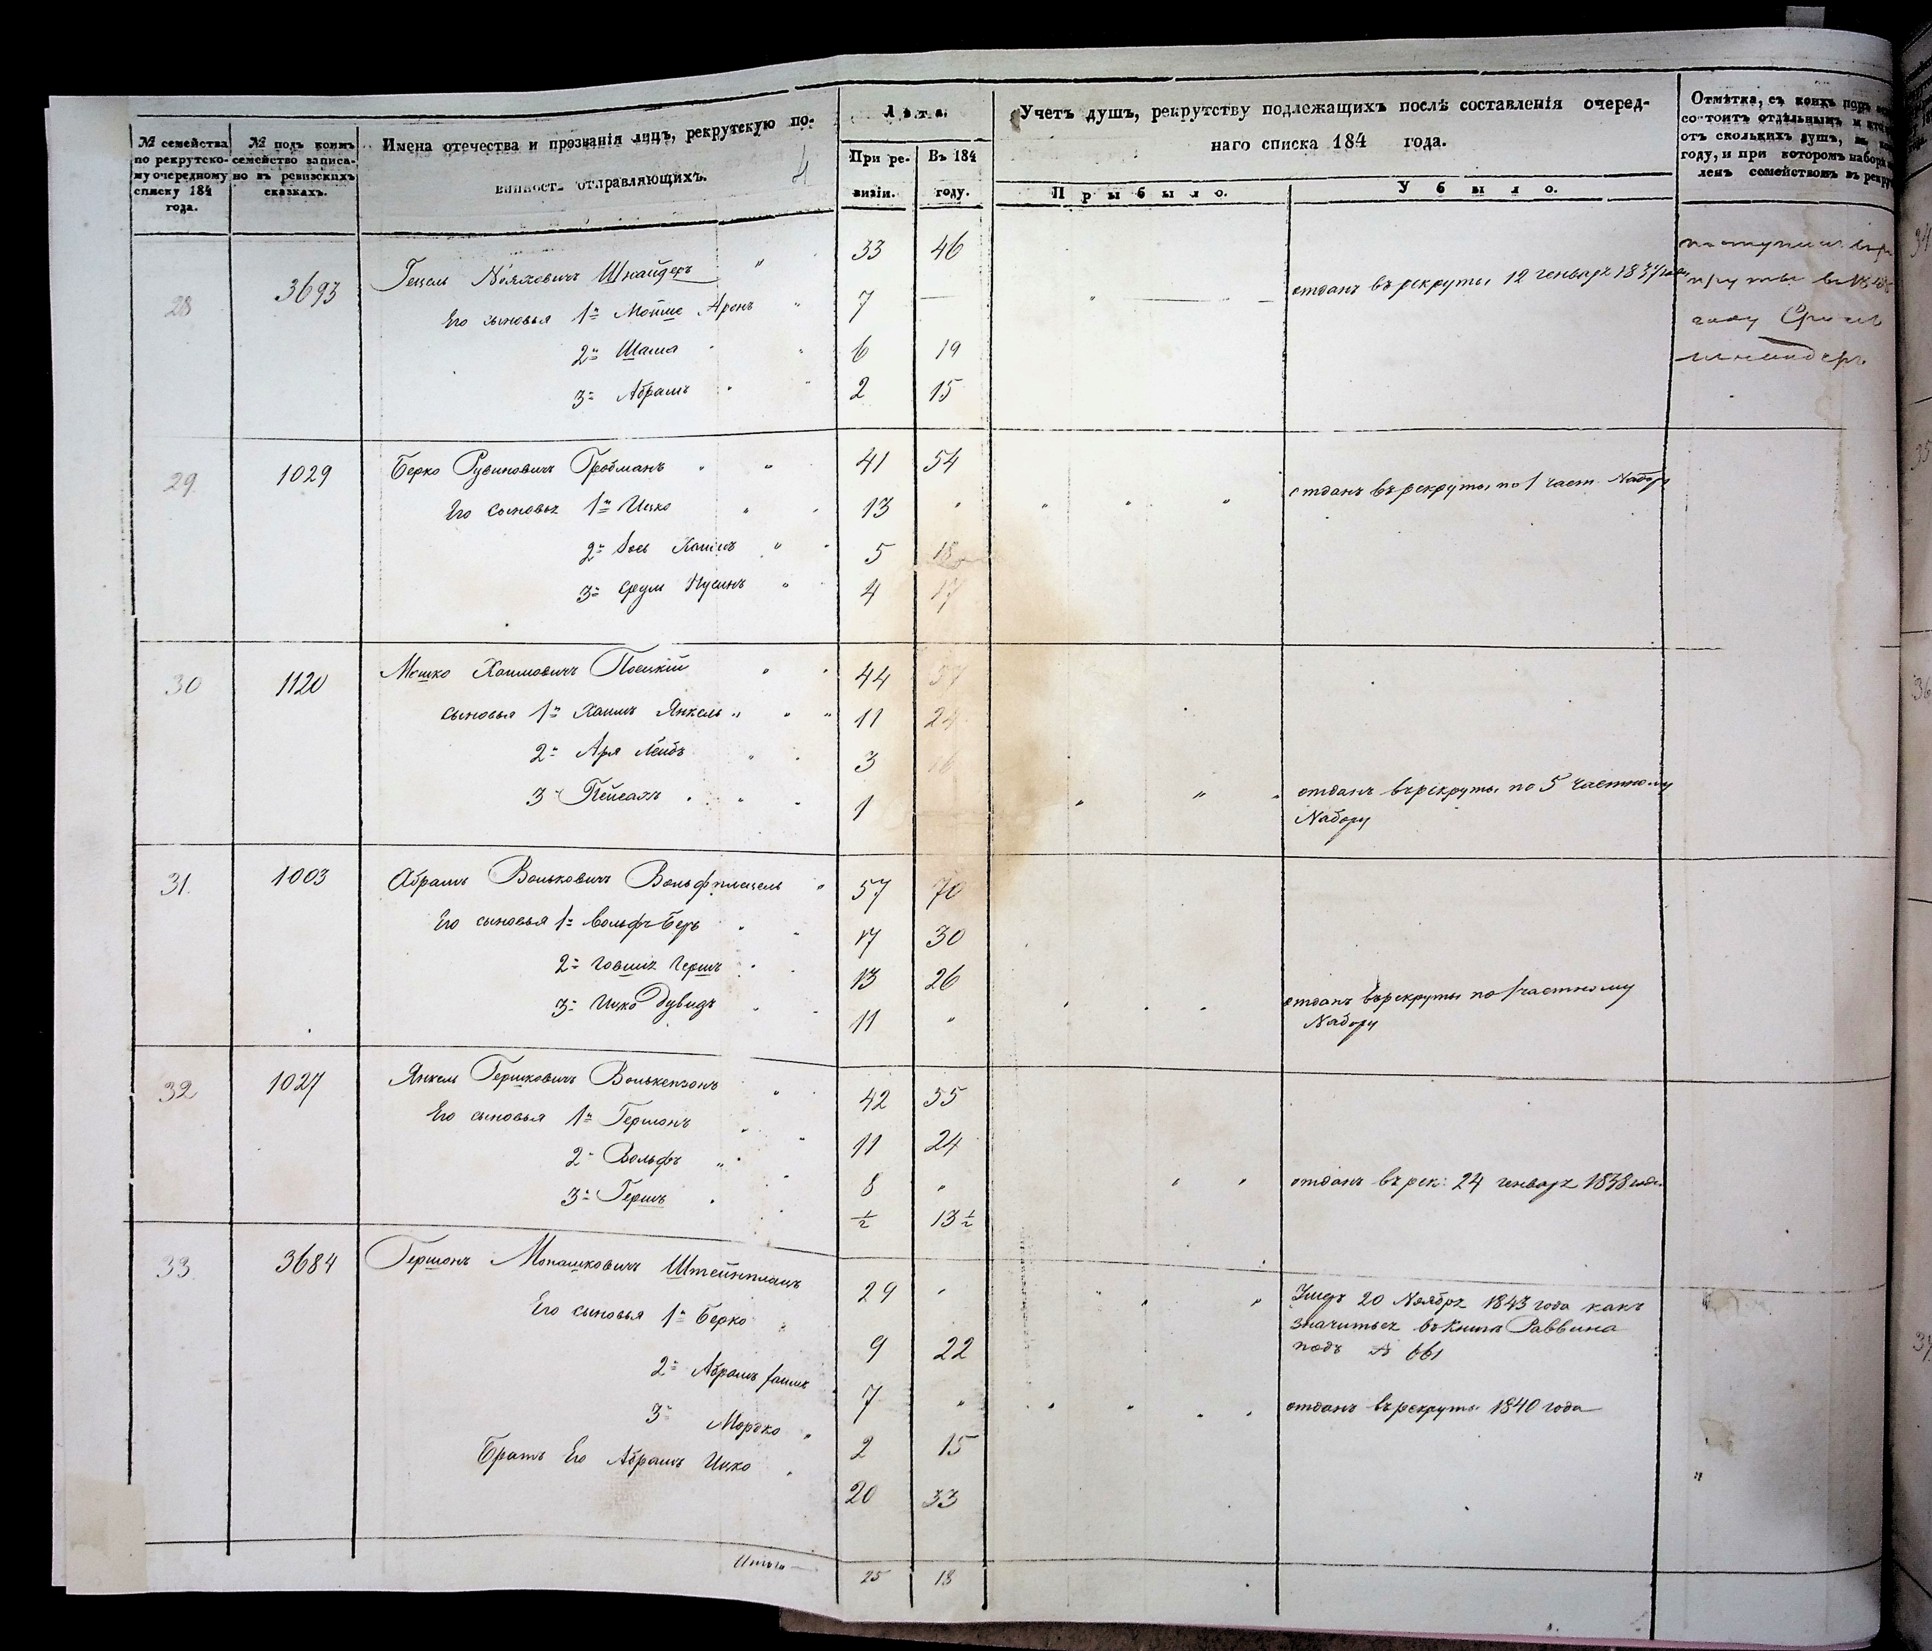 № семейства по рекрутскому очередному списку 184 года.
№ подъ коимъ семейство записано въ ревизскихъ сказкахъ.
Имена отечества и прозванія лицъ, рекрутскую повинность отправляющихъ.
4
Лѣта.
При ревизіи.
Въ 184 году.
Учетъ душъ, рекрутству подлежащихъ послѣ составленія очереднаго списка 184 года.
Прибыло.
Убыло.
Отмѣтка, съ коихъ поръ
состоитъ отдѣльнымъ и
отъ сколькихъ душъ, въ
году, и при которомъ наборѣ
семействомъ въ
28 3693 Гецель Шнайдеръ " 33 46
Его сыновья 1й Мойше Аронъ " 7 — " отданъ въ рекруты 12 генваря 1837
2й Шама " 6 19
3й Абрамъ " 2 15
году
29 1029 Берко Рувиновичъ Гробманъ " " 41 54
Его сыновья 1й Ицко " 13 " " " " отданъ въ рекруты по 1 част. Набор
2й Хаимъ " 5 18
3й Срул Нусинъ " 4 17
30 1120 Мошко Хаимовичъ " 44 57
сыновья 1й Хаимъ Янкель " " " 11 24
2й Аря Лейбъ " 3 16
3й Пейсахъ " " 1 " " " отданъ въ рекруты по 5 частному
Набору
31. 1003 Абрамъ Вольковичъ " 57 70
Его сыновья 1й Вольфъ Беръ " 17 30
2й Гершъ " 13 26
3й Ицко Дувидъ " 11 " " " " отданъ въ рекруты по 1 частному
Набору
32 1027 Янкель Гершковичъ Волькензонъ " 42 55
Его сыновья 1й Гершонъ " " 11 24
2й Вольфъ " 8 " " " отданъ въ рек: 24 генваря 1838 года
3й Гершъ " ½ 13½
33. 3684 Гершонъ Монашковичъ 29 " " " " Умеръ 20 Ноября 1843 года какъ
значитьса въ Книга Раввина
подъ № 661
Его сыновья 1й Берко " 9 22
2й Абрамъ Хаимъ 7 " " " " " отданъ въ рекруты 1840 года
3й Мордко " 2 15
Братъ Его Абрамъ Ицко " 20 33
Итого — 25 18